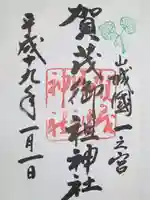 山城國一之宮
賀茂御祖神社
平成十九年一月一日